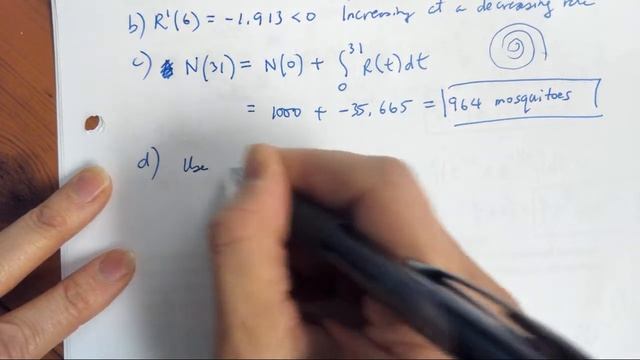 b) R'(6) = -1.913 < 0 Increasing at a decreasing rate
c) N(31) = N(0) + ∫₀³¹ R(t)dt
= 1000 + -35.665 = 964 mosquitoes
d) Use